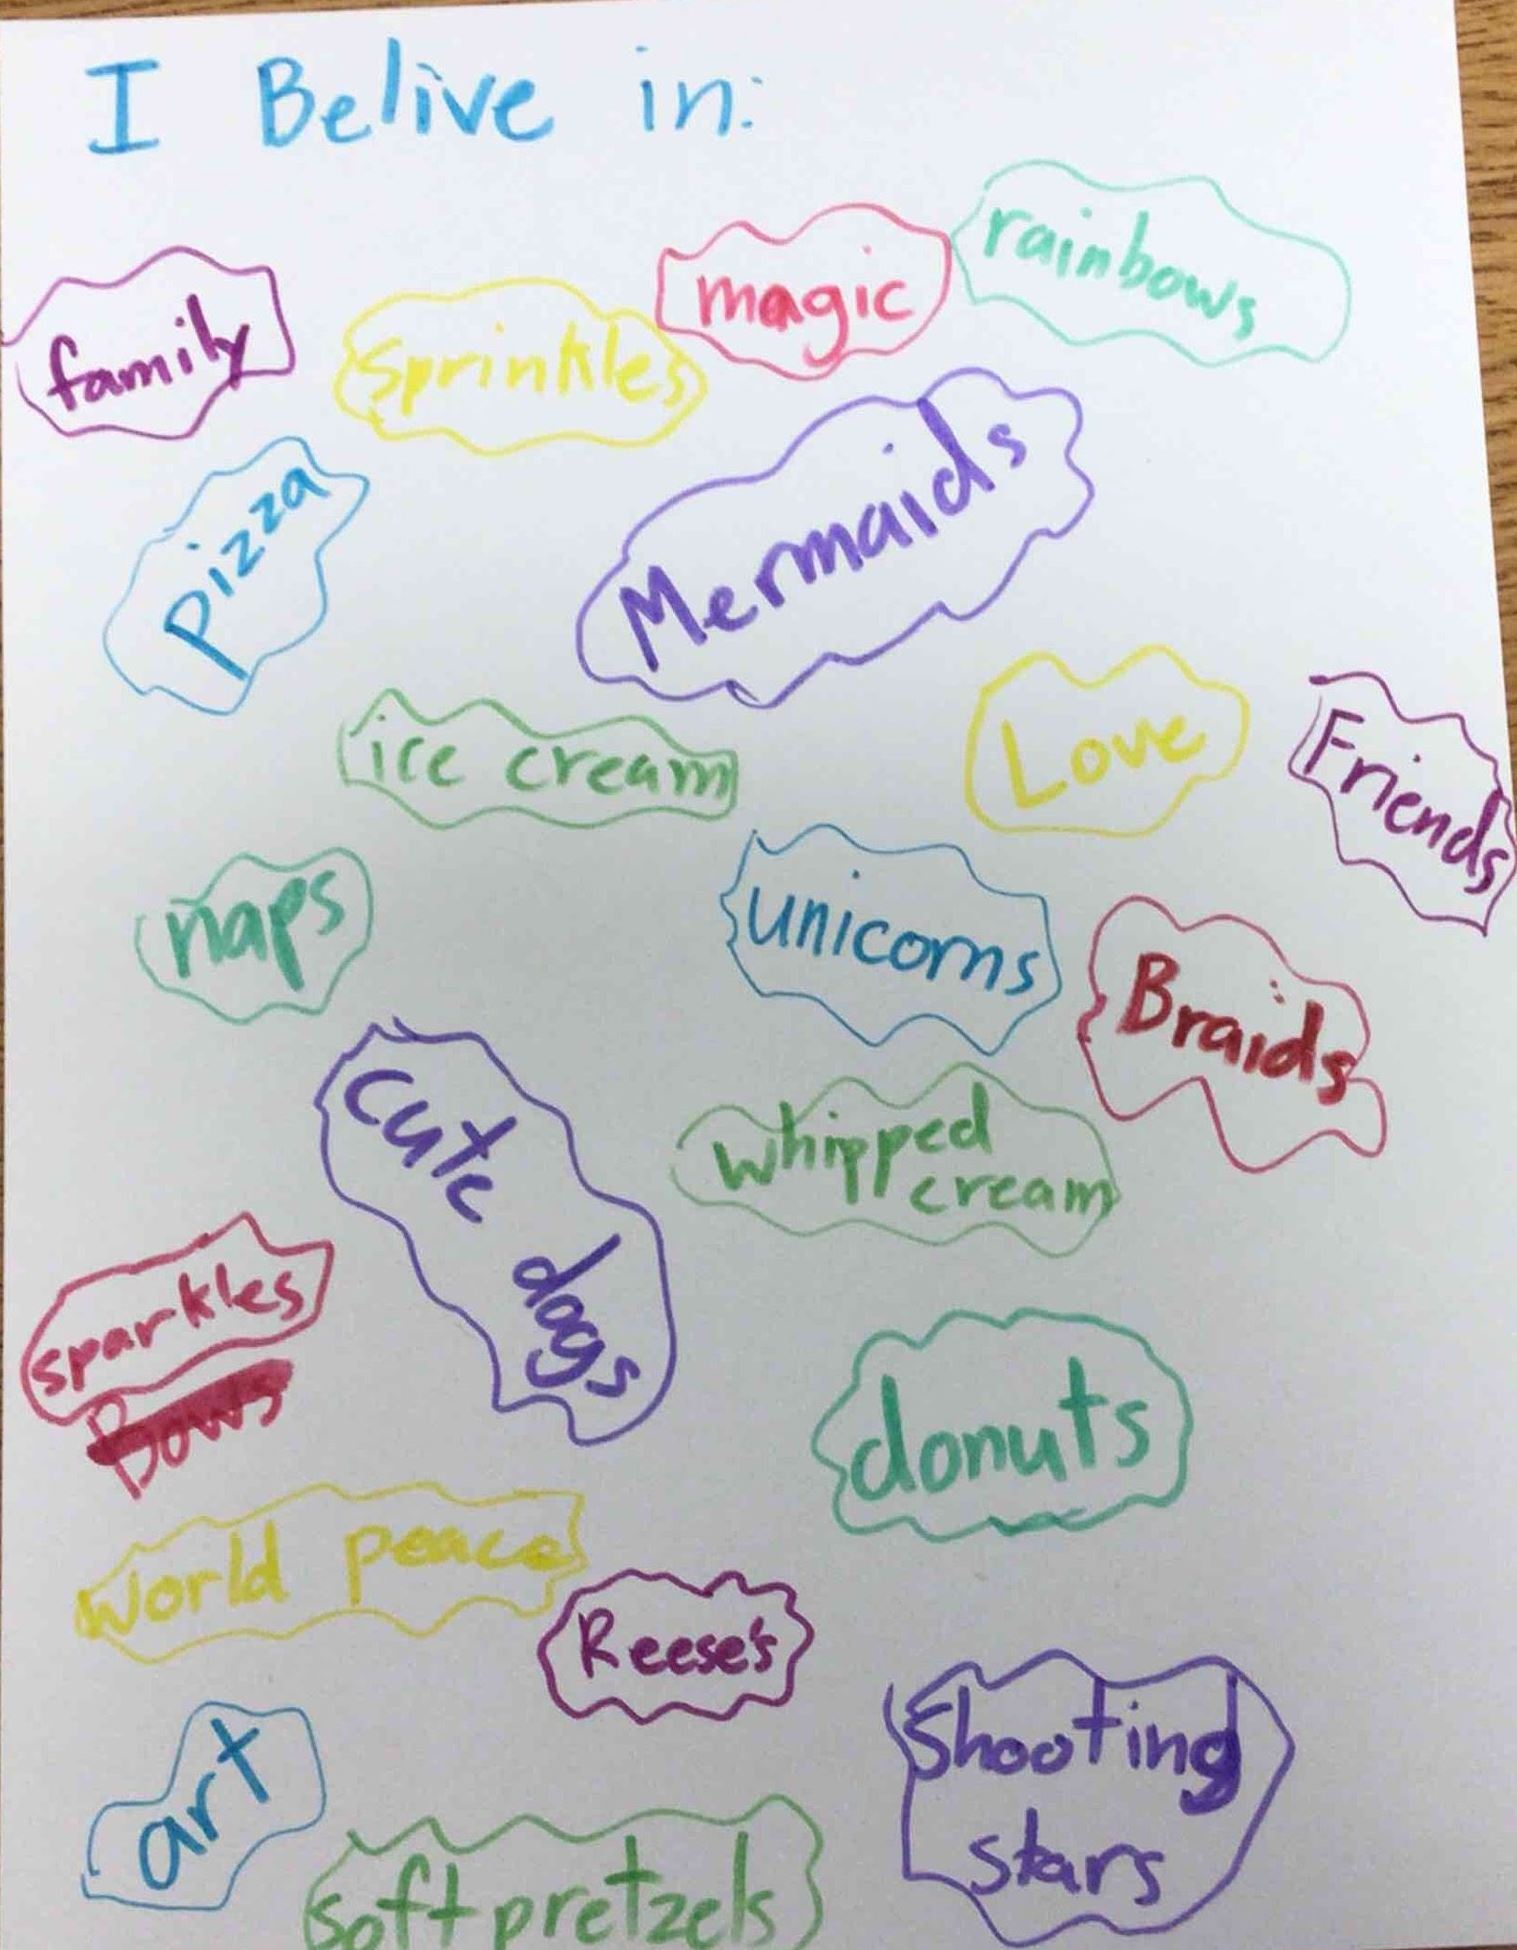 I Belive in:
rainbows
magic
family
Sprinkles
pizza
Mermaids
ice cream
Love
Friends
naps
unicorns
Braids
cute dogs
whipped
cream
sparkles
Bows
donuts
world peace
Reese's
Shooting
stars
art
soft pretzels